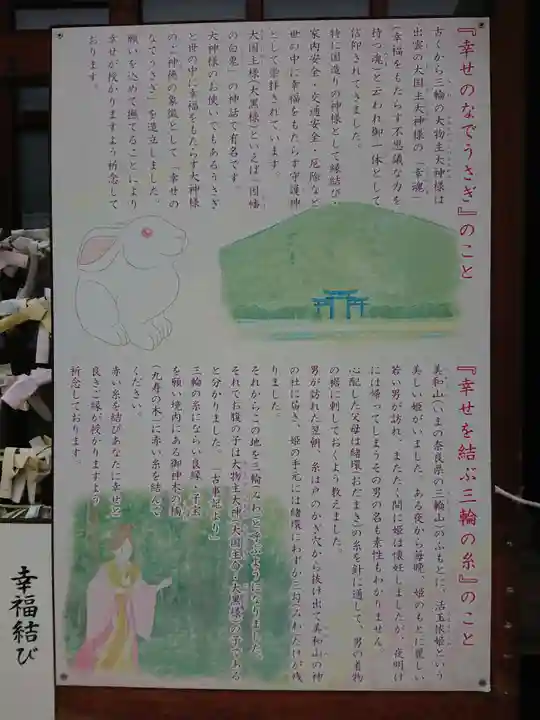 『幸せのなでうさぎ』のこと
古くから三輪の大物主大神様は
出雲の大国主大神様の「幸魂」
(幸福をもたらす不思議な力を
持つ魂)と云われ御一体として
信仰されてきました。
特に国造りの神様として縁結び・
家内安全・交通安全・厄除など
世の中に幸福をもたらす守護神
として崇拝されています。
大国主様(大黒様)といえば「因幡
の白兎」の神話で有名です。
大神様のお使いでもあるうさぎ
と世の中に幸福をもたらす大神様
の御神徳の象徴として「幸せの
なでうさぎ」を造立しました。
願いを込めて撫でることにより
幸せが授かりますよう祈念して
おります。
『幸せを結ぶ三輪の糸』のこと
美和山(いまの奈良県の三輪山)のふもとに、活玉依姫という
美しい姫がいました。ある夜から毎晩、姫のもとに麗しい
若い男が訪れ、またたく間に姫は懐妊しましたが、夜明け
には帰ってしまうその男の名も素性もわかりません。
心配した父母は緒環(おだまき)の糸を針に通して、男の着物
の裾に刺しておくよう教えました。
男が訪れた翌朝、糸は戸のかぎ穴から抜け出て美和山の神
の社に届き、姫の手元には緒環にわずか三勾(みわ)だけが残
りました。
それからこの地を三輪(みわ)と呼ぶようになりました。
それでお腹の子は大物主大神(大国主命・大黒様)の子である
と分かりました。「古事記より」
三輪の糸にならい良縁・子宝
を願い境内にある御神木の橘
(九寿の木)に赤い糸を結んで
ください。
赤い糸を結びあなたに幸せと
良きご縁が授かりますよう
祈念しております。
幸福結び